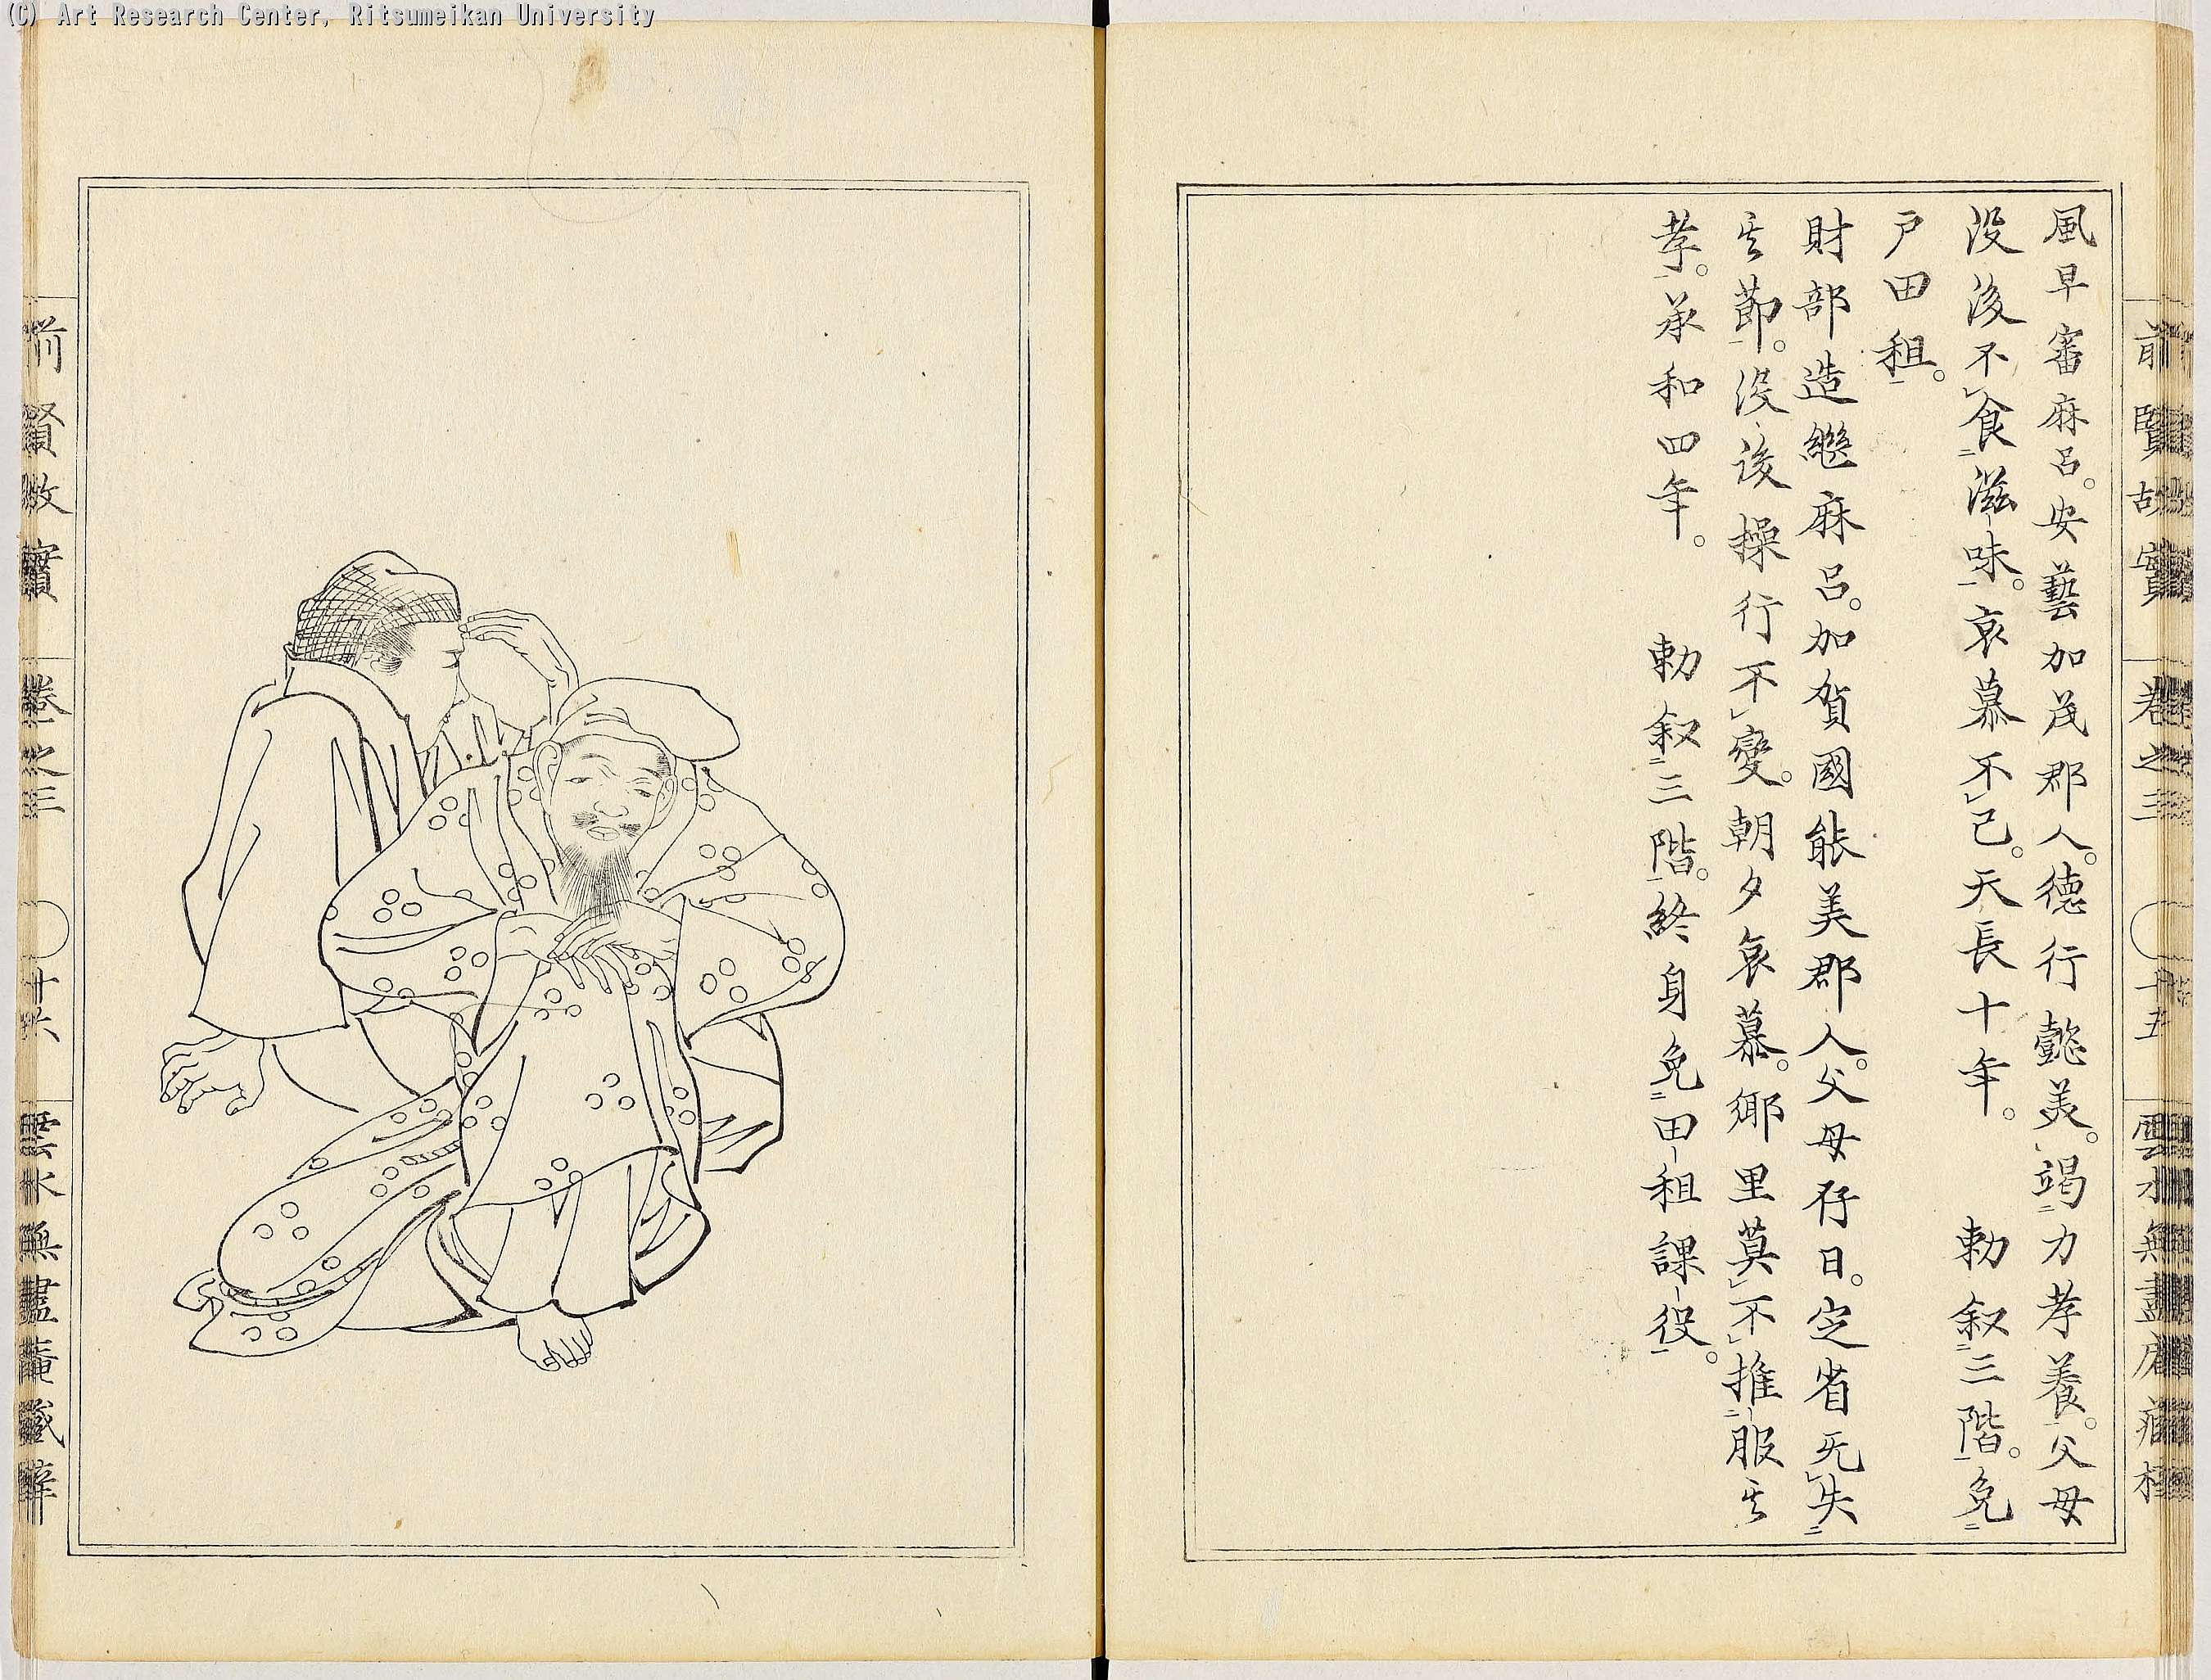 (C) Art Research Center, Ritsumeikan University
風早審麻呂。安藝加茂郡人。德行懿美。竭二力孝養一。父母
没後不レ食二滋味一。哀慕不レ已。天長十年。　勅叙二三階一。免二
戸田租一。
財部造繼麻呂。加賀國能美郡人。父母存日。定省无レ失二
其節一。没後操行不レ變。朝夕哀慕。鄉里莫レ不レ推二服其
孝一。承和四年。　勅叙二三階一。終身免二田租課役一。
前賢故實　卷之三　十五　雲水無盡庵
前賢故實　卷之三　十六　雲水無盡庵藏梓